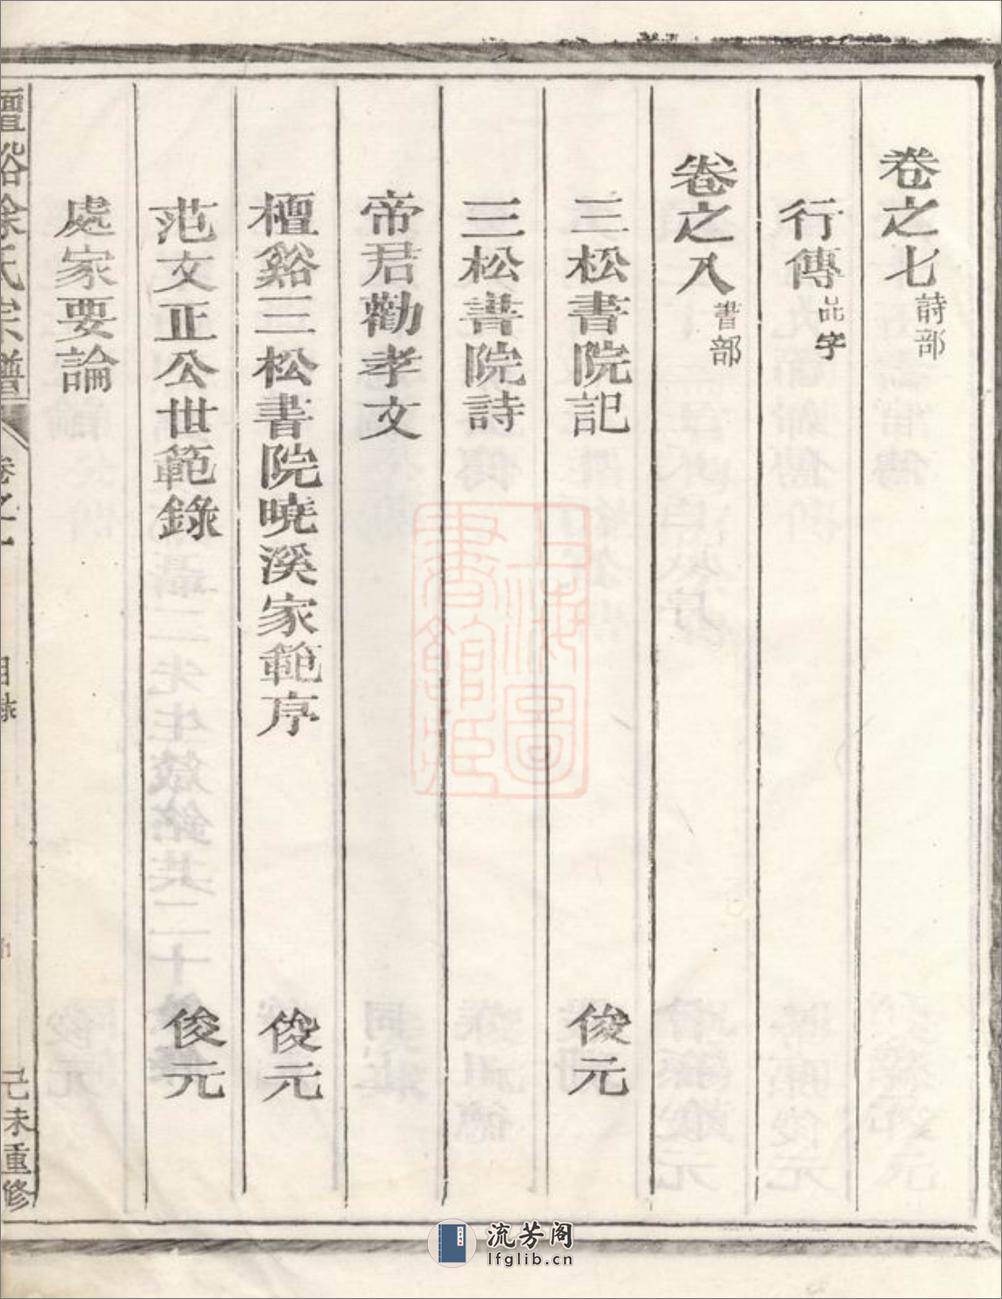 卷之七 詩部
行傳
卷之八 書部
三松書院記 俊元
三松書院詩
帝君勸孝文
檀谿三松書院曉溪家範序 俊元
范文正公世範錄 俊元
處家要論
檀谿徐氏宗譜 卷之一 目錄 己未重修
上海圖書館藏
流芳阁
lfglib.cn